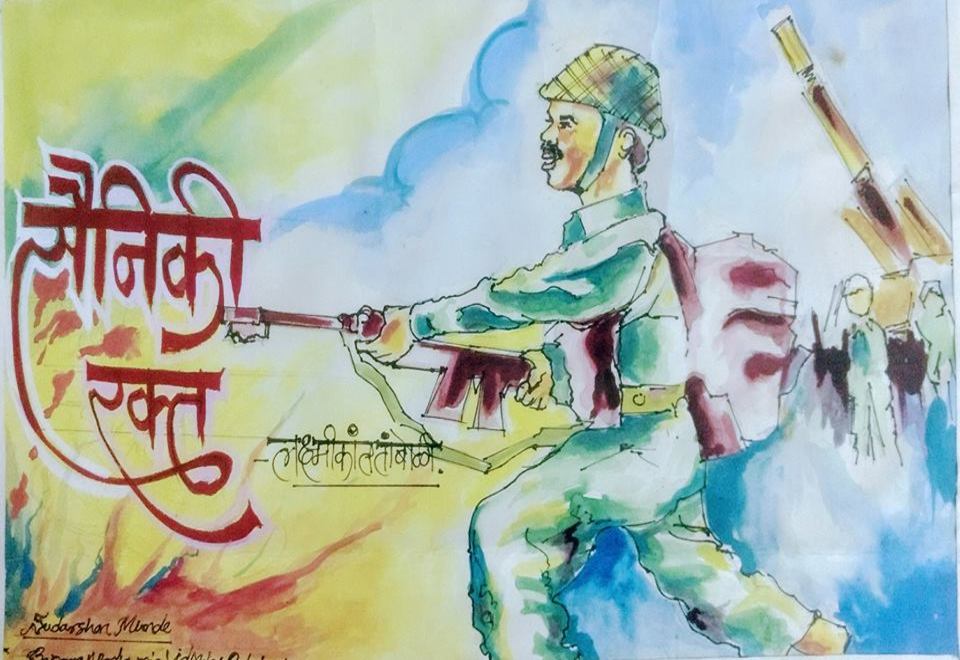 सैनिकी
रक्त
- लक्ष्मीकांत तांबोळी.
Sudarshan Munde